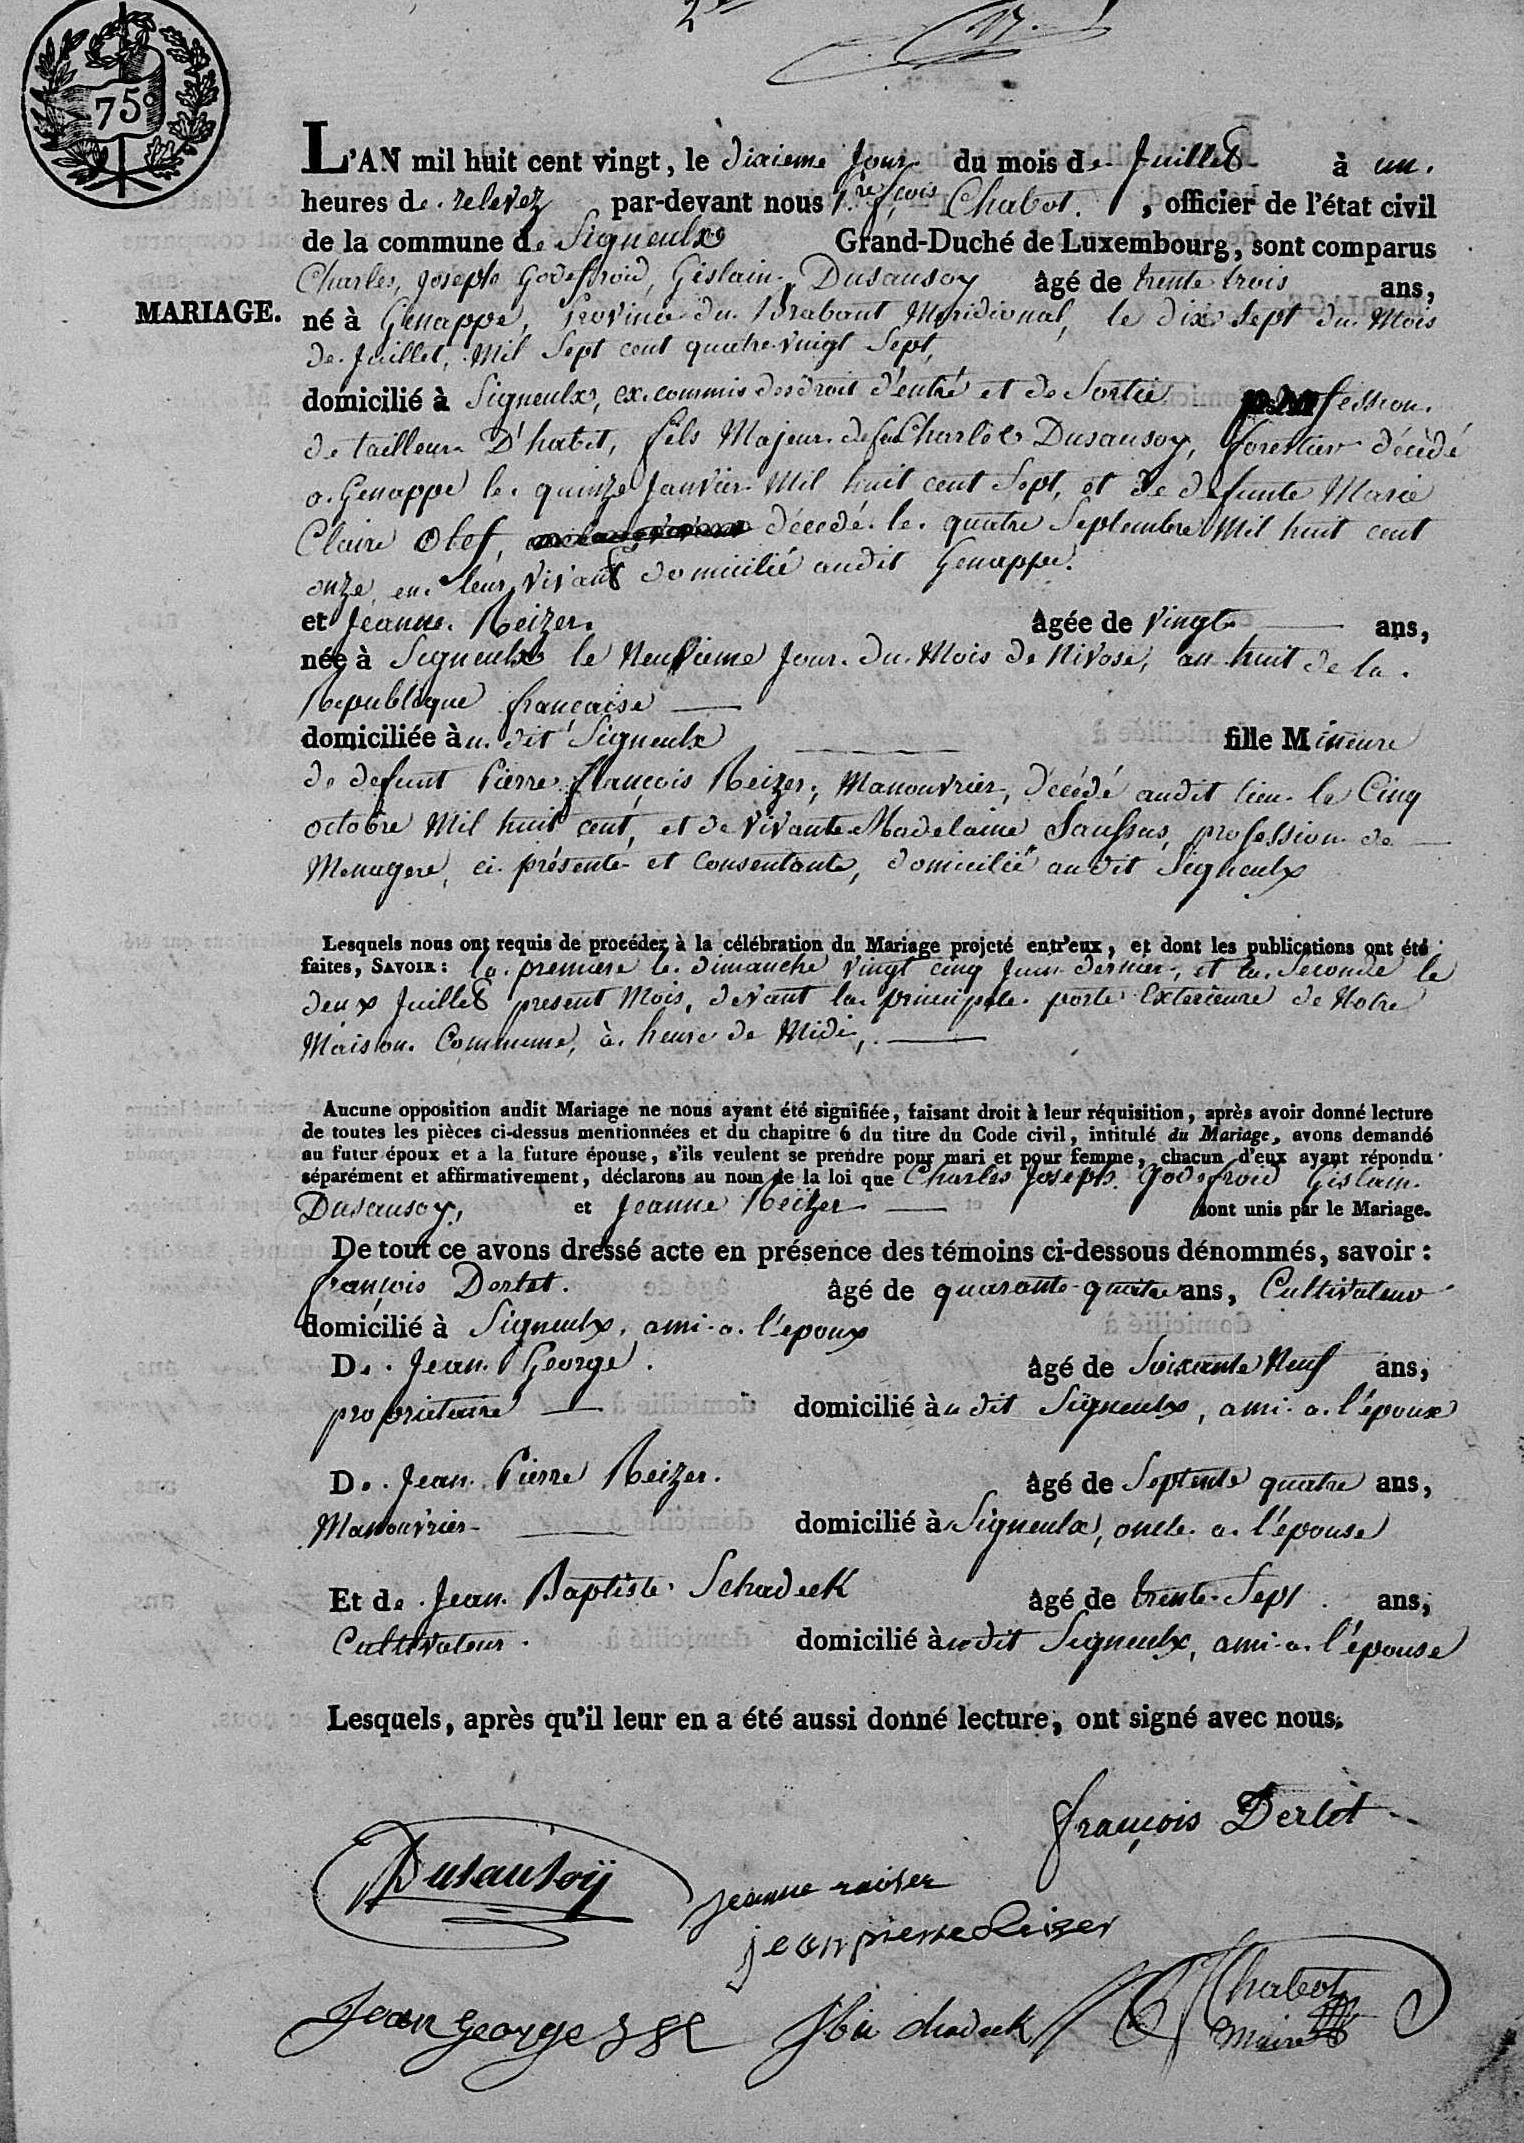 2
17.
75
L'AN mil huit cent vingt, le dixieme Jour du mois de Juillet à un.
heures de relevez par-devant nous P.re f.çois Chabot. , officier de l'état civil
de la commune de Signeulx Grand-Duché de Luxembourg, sont comparus
Charles, Joseph Godeffroid, Gislain, Dusausoy âgé de trente trois ans,
MARIAGE.
né à Genappe, Province du Brabant Méridional, le dix Sept du Mois
de Juillet, Mil Sept cent quatre vingt Sept,
domicilié à Signeulx, ex. commis des droit d'entré et de Sortie profession
de tailleur D'habit, fils Majeur de feu Charles Dusausoy, forestier décédé
a Genappe le quinze Janvier Mil huit cent Sept, et de defunte Marie
Claire Olef, décedé le quatre Septembre Mil huit cent
onze, en leur vivant domicilié audit Genappe.
et Jeanne Reizer. âgée de vingt ans,
née à Signeulx le Neuvieme Jour du Mois de Nivose, an huit de la
Republique française
domiciliée à u dit Signeulx fille Mineure
de defunt Pierre François Reizer, Manouvrier, décédé audit lieu le Cinq
octobre Mil huit cent, et de vivante Madelaine Saussus, profession de
Menagere, ci présente et Consentante, domicilié audit Signeulx
Lesquels nous ont requis de procéder à la célébration du Mariage projeté entr'eux, et dont les publications ont été
faites, SAVOIR : la premiere le dimanche vingt cinq Juin dernier, et la Seconde le
deux Juillet present Mois, devant la principale porte Exterieure de Notre
Maison Commune, à heure de Midi,
Aucune opposition audit Mariage ne nous ayant été signifiée, faisant droit à leur réquisition, après avoir donné lecture
de toutes les pièces ci-dessus mentionnées et du chapitre 6 du titre du Code civil, intitulé du Mariage, avons demandé
au futur époux et a la future épouse, s'ils veulent se prendre pour mari et pour femme, chacun d'eux ayant répondu
séparément et affirmativement, déclarons au nom de la loi que Charles Joseph Godefroid Gislain
Dusausoy, et Jeanne Reizer sont unis par le Mariage.
De tout ce avons dressé acte en présence des témoins ci-dessous dénommés, savoir :
François Derlet. âgé de quarante quatre ans, Cultivateur
domicilié à Signeulx, ami a l'epoux
De Jean George. âgé de Soixante Neuf ans,
proprietaire domicilié à u dit Signeulx, ami a l'époux
De Jean Pierre Reizer. âgé de Septente quatre ans,
Manouvrier domicilié à Signeulx, oncle a l'épouse
Et de Jean Baptiste Schadeck âgé de trente Sept ans,
Cultivateur domicilié à u dit Signeulx, ami a l'épouse
Lesquels, après qu'il leur en a été aussi donné lecture, ont signé avec nous.
françois Derlet
Dusausoÿ
jeanne raiser
jean pierre Reizer
Jean George
Chabot
Maire